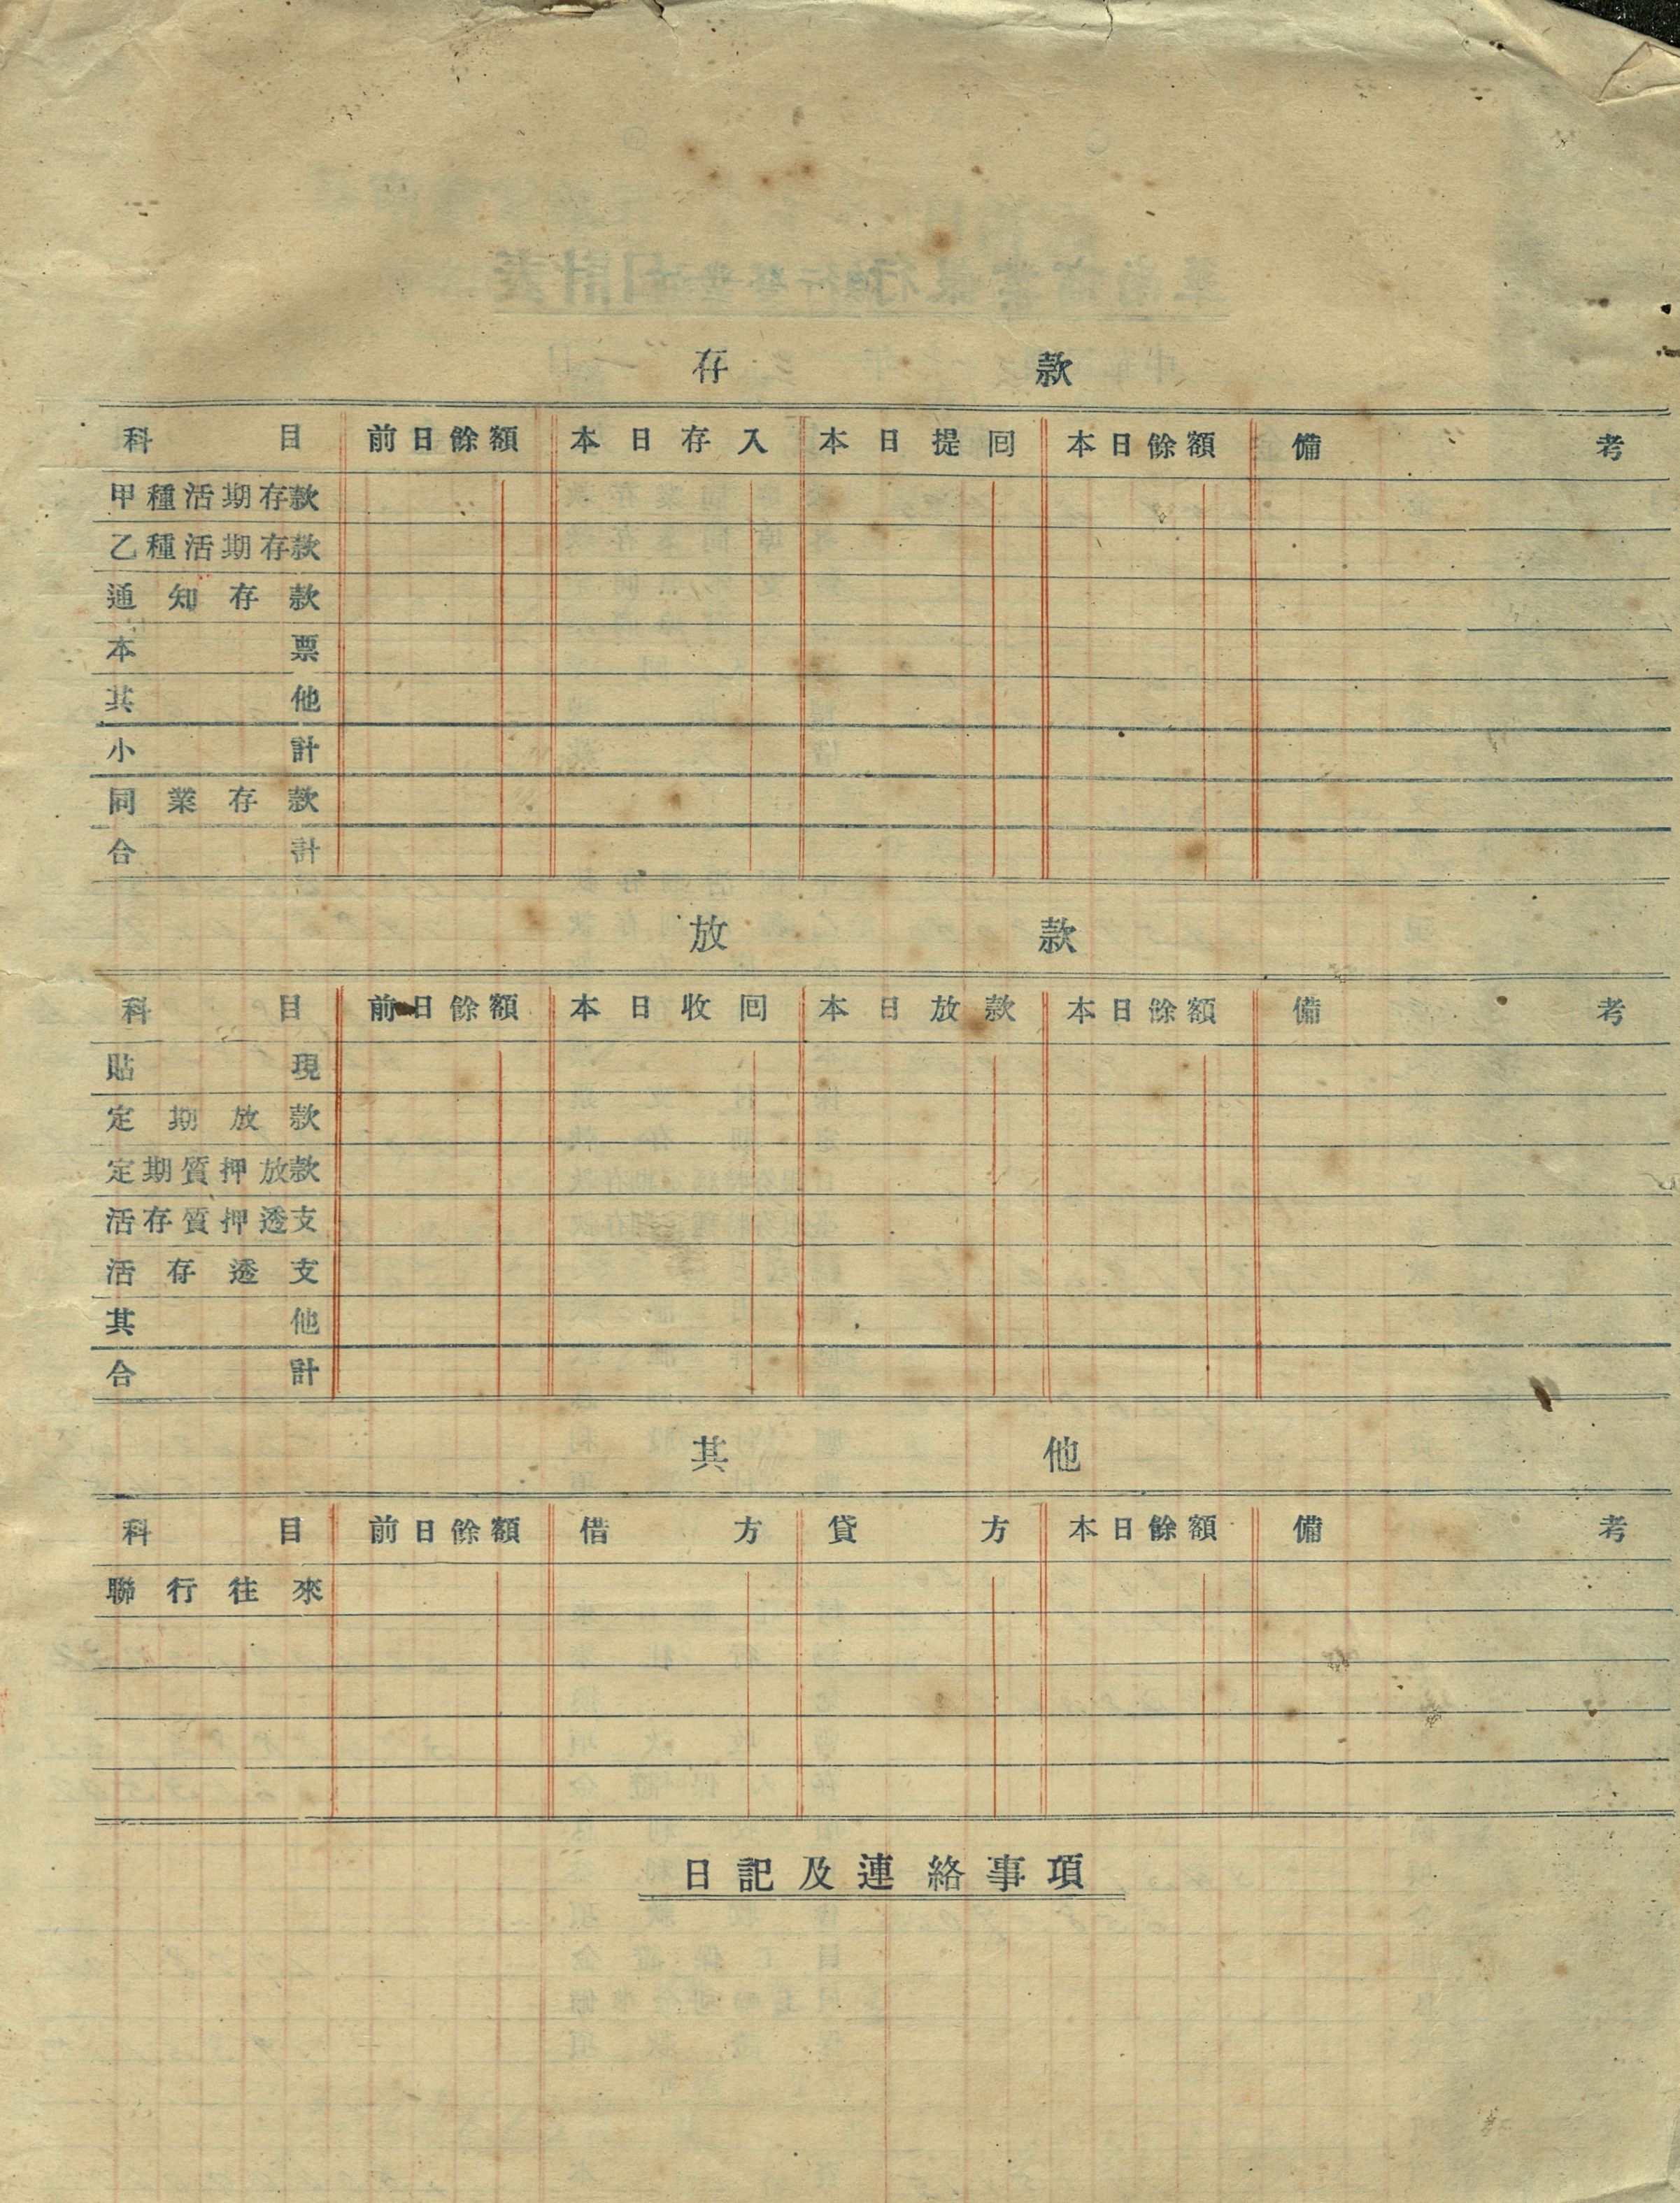 存款
科目 前日餘額 本日存入 本日提囘 本日餘額 備考
甲種活期存款
乙種活期存款
通知存款
本票
其他
小計
同業存款
合計
放款
科目 前日餘額 本日收囘 本日放款 本日餘額 備考
貼現
定期放款
定期質押放款
活存質押透支
活存透支
其他
合計
其他
科目 前日餘額 借方 貸方 本日餘額 備考
聯行往來
日記及連絡事項